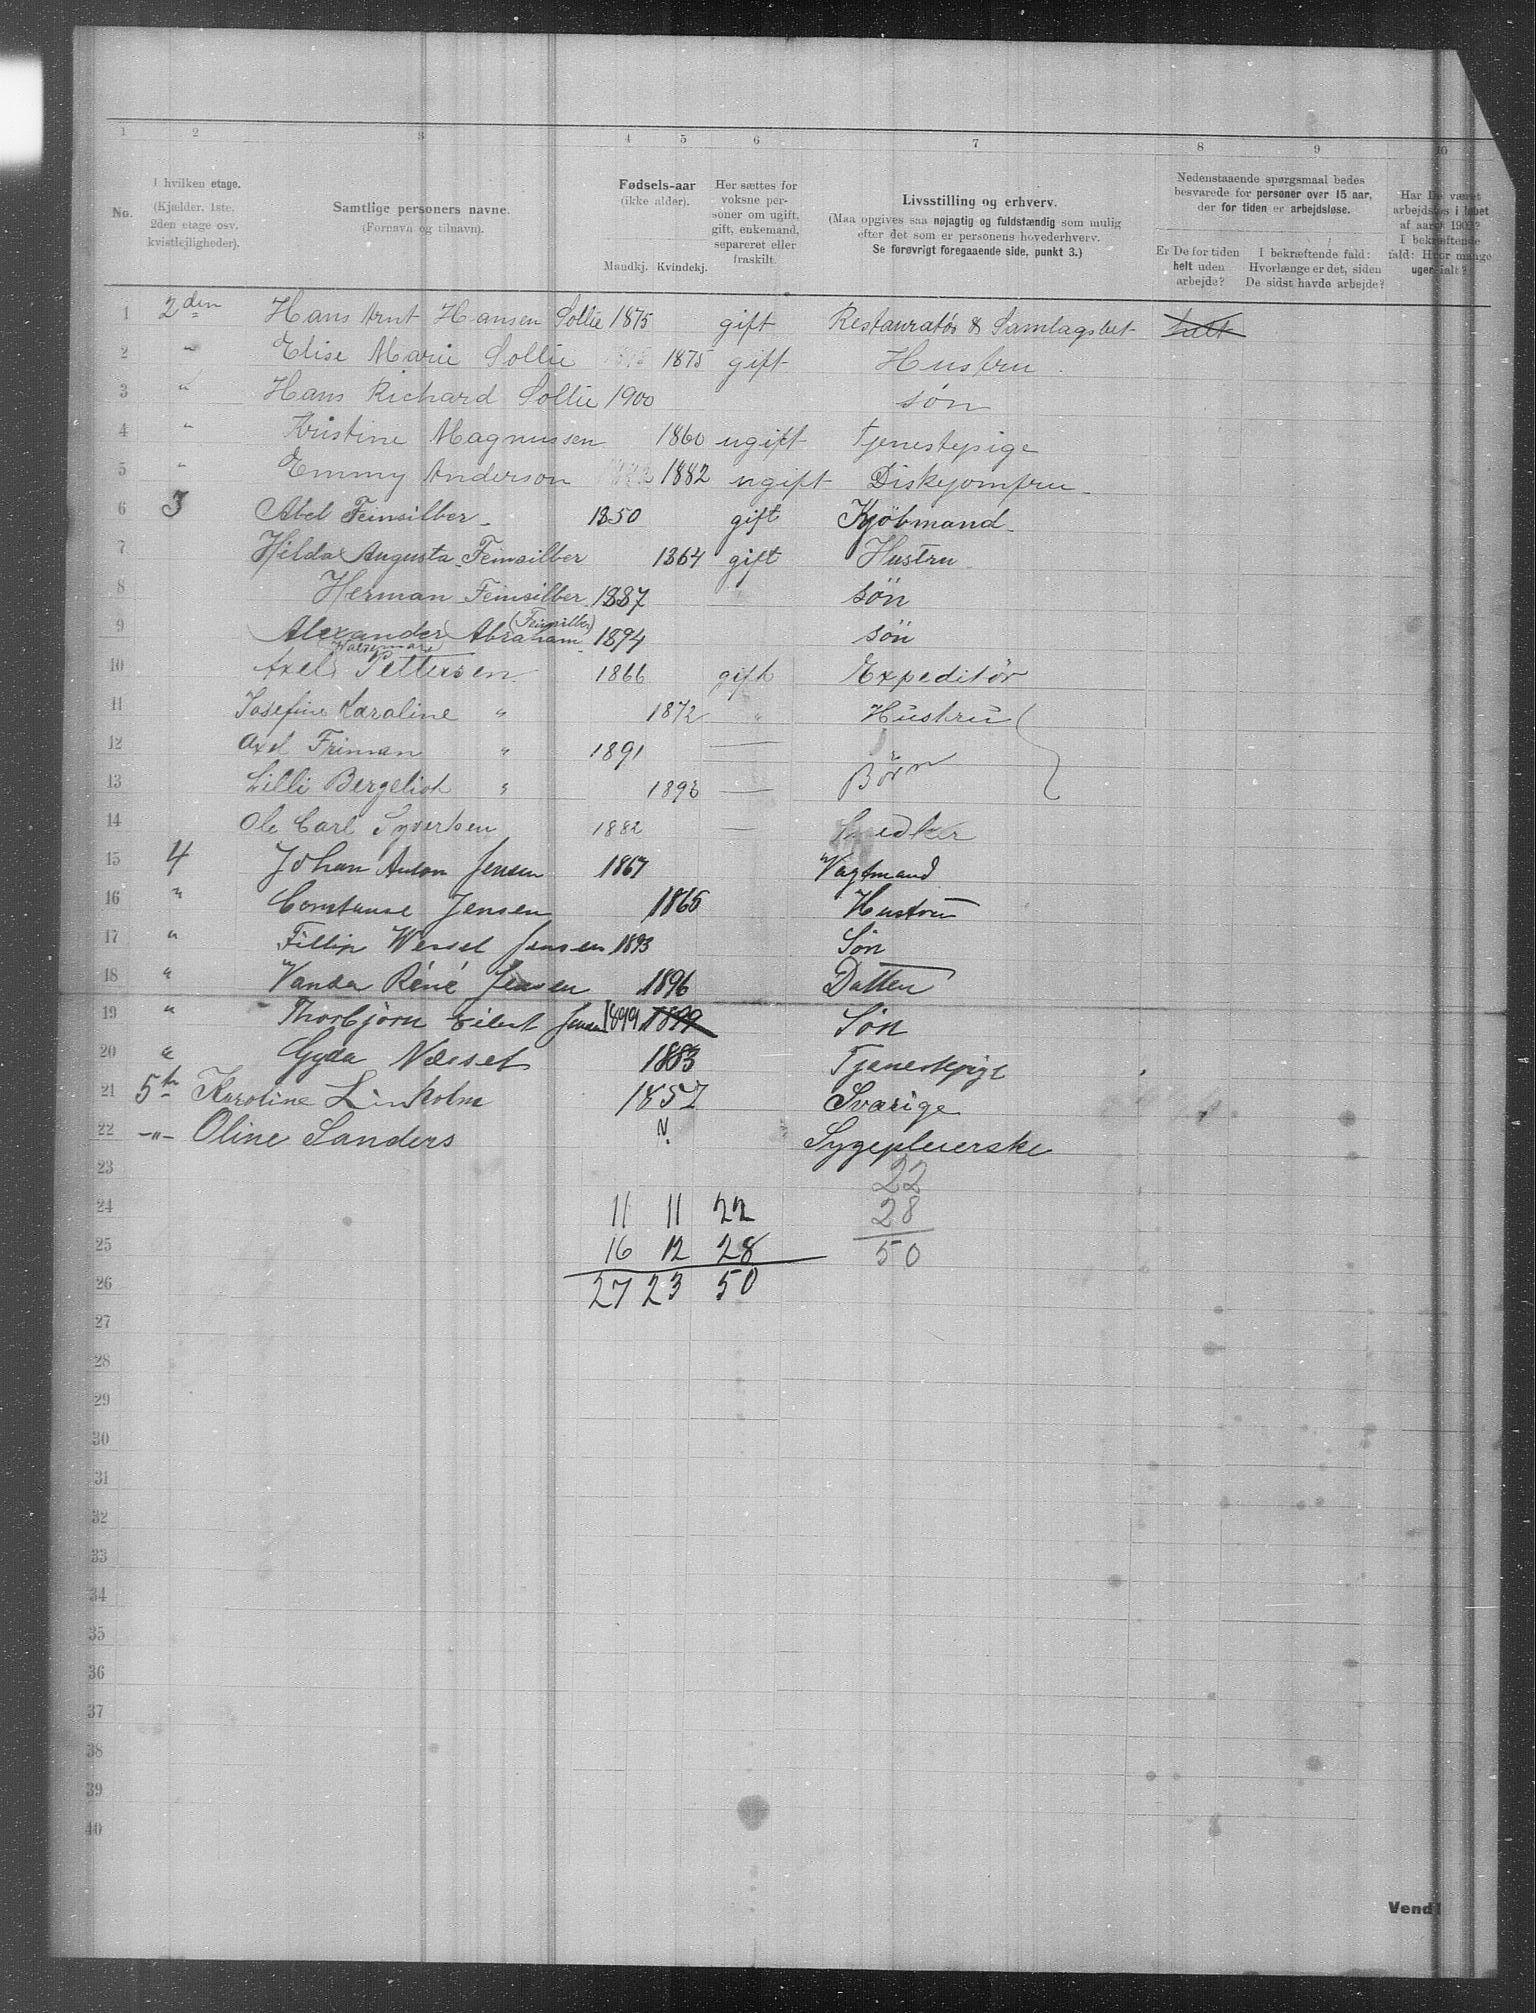 1 2 3 4 5 6 7 8 9 10
No.
I hvilken etage.
(Kjælder, 1ste,
2den etage osv.
kvistlejligheder).
Samtlige personers navne.
(Fornavn og tilnavn).
Fødsels-aar
(ikke alder).
Mandkj. Kvindekj.
Her sættes for
voksne per-
soner om ugift,
gift, enkemand,
separeret eller
fraskilt.
Livsstilling og erhverv.
(Maa opgives saa nøjagtig og fuldstændig som mulig
efter det som er personens hovederhverv.
Se forøvrigt foregaaende side, punkt 3.)
Nedenstaaende spørgsmaal bedes
besvarede for personer over 15 aar,
der for tiden er arbejdsløse.
Er De for tiden
helt uden
arbejde?
I bekræftende fald:
Hvorlænge er det, siden
De sidst havde arbejde?
Har De været
arbejdsløs i løbet
af aaret 1902?
I bekræftende
fald: Hvor mange
uger ialt?
1 2den Hans Arnt Hansen Sollie 1875 gift Restauratör & Samlagsbet
2 " Elise Marie Sollie 1875 gift Hustru
3 " Hans Richard Sollie 1900 søn
4 " Kristine Magnussen 1860 ugift Tjenestepige
5 " Emmy Anderson 1882 ugift Diskjomfru
6 3 Abel Feinsilber 1850 gift Kjöbmand
7 Hilda Augusta Feinsilber 1864 gift Hustru
8 Herman Feinsilber 1887 søn
9 Alexander Abraham (Feinsilber) 1894 sön
10 Axel Pettersen 1866 gift Expeditör
11 Josefine Karoline " 1872 " Hustru
12 Axel Friman " 1891
13 Lilli Bergeliot " 1893 Börn
14 Ole Carl Syvertsen 1882 Snedker
15 4 Johan Anton Jensen 1867 Vagtmand
16 " Constance Jensen 1865 Hustru
17 " Fillip Wessel Jensen 1893 Søn
18 " Vanda Réné Jensen 1896 Datter
19 " Thorbjörn Eilert Jensen 1899 1899 Søn
20 " Gyda Næsset 1883 Tjenestpige
21 5te Karoline Linholm 1857 Svarige
22 -"- Oline Sanders Sygepleierske
23 22
24 11 11 22 28
25 16 12 28 50
26 27 23 50
27
28
29
30
31
32
33
34
35
36
37
38
39
40
Vend!